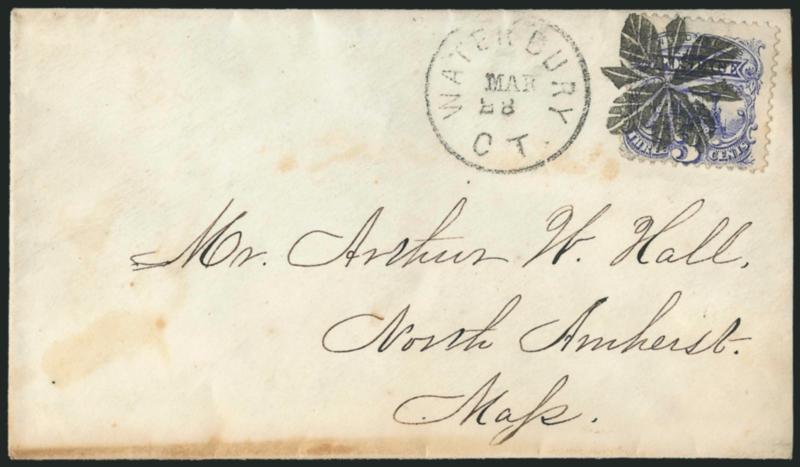 WATERBURY
MAR
CT.
THREE 3 CENTS
Mr. Arthur W. Hall,
North Amherst.
Maſs.